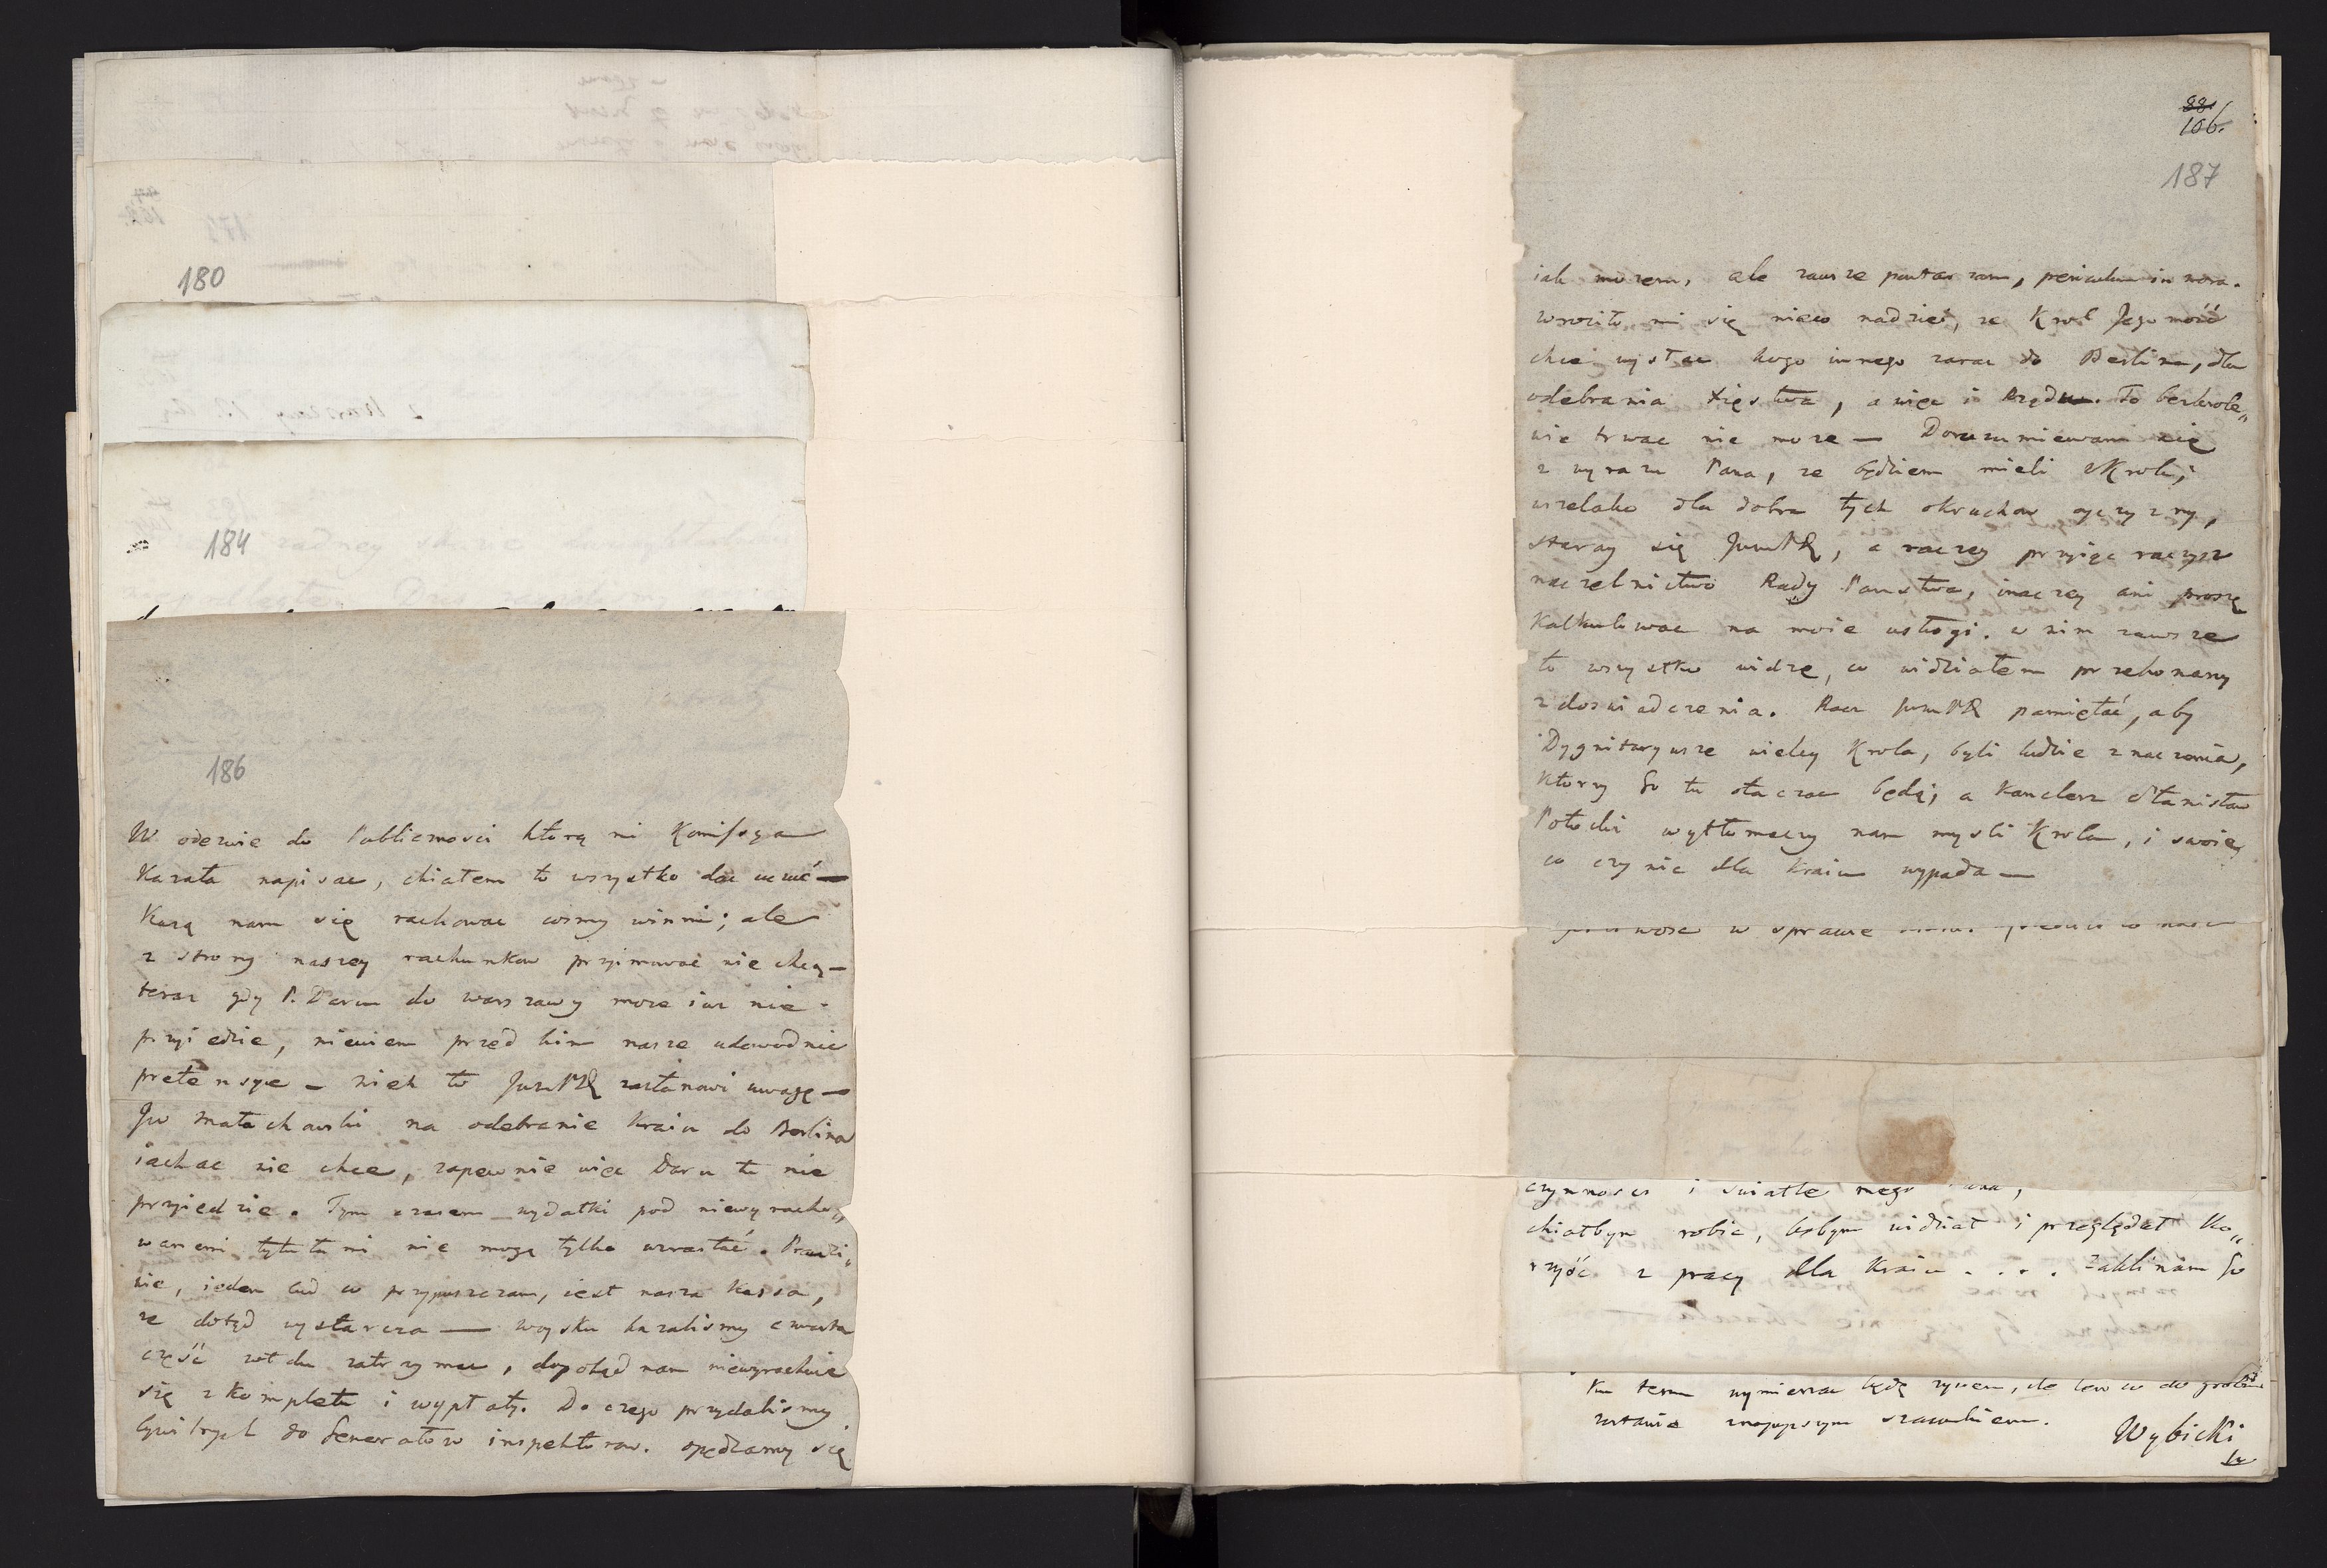 180
184
186
W odezwie do Publicznosci którą mi Komissya
Kazała napisac, chiałem to wszystko dac uczuć —
Każą nam się rachowac cosmy winni; ale
z strony naszey rachunkow przyimować nie chcą —
teraz gdy P. Daru do warszawy moze iuz nie
przyiedzie, niewiem przed kim nasze udowodnic
pretensye — niech to JWWPD zastanowi uwagę —
JW Małachowski na odebranie Kraiu do Berlina
iachac nie chce, zapewnie więc Daru tu nie
przyiedzie. Tym czasem wydatki pod niewyracho„
wanemi tytułami nie mogą tylko wzrastać. Prawdzi„
wie, ieden cud co przypuszczam, iest nasza Kassa,
ze dotąd wystarcza — woysku kazalismy czwarta
część zołdu zatrzymac, dopokąd nam niewyrachuie
się z kompletu i wypłaty. Do czego przydalismy
cywilnych do Generałow inspektorow. opędzamy się
88
106.
187
iak mozem, ale zawsze powtarzam, periculum in mora.
wrociło mi się nieco nadziei, ze Krol Jegomość
chce wysłac kogo innego zaraz do Berlina, dla
odebrania Xięstwa, a więc i Rządu. To bezkrole„
wie trwac nie moze — Dorozumiewam się
z wyrazu Pana, ze będziem mieli Vkrola;
wszelako dla dobra tych okruchow oyczyzny,
staray się JWWPD, a raczey przyiąc raczysz
naczelnictwo Rady Panstwa, inaczey ani proszę
Kalkulowac na moie usługi. w nim zawsze
to wszystko widzę, co widziałem przekonany
z doswiadczenia. Racz JWWPD pamiętać, aby
Dygnitaryusze wielcy Krola, byli ludzie znaczenia,
Ktorzy Go tu otaczac będą; a Kanclerz Stanisław
Potocki wytłomaczy nam mysli Krola, i swoie,
co czynic dla Kraiu wypada —
w sprawie
czynnosci i swiatle mego Pana,
chiałbym robic, bobym widział i przeglądał Ko„
rzyść z pracy dla Kraiu . . . . Zaklinam Go
Ku temu wymierzac będę zycia, ile
zostaie z naywyzszym szacunkiem.
Wybicki